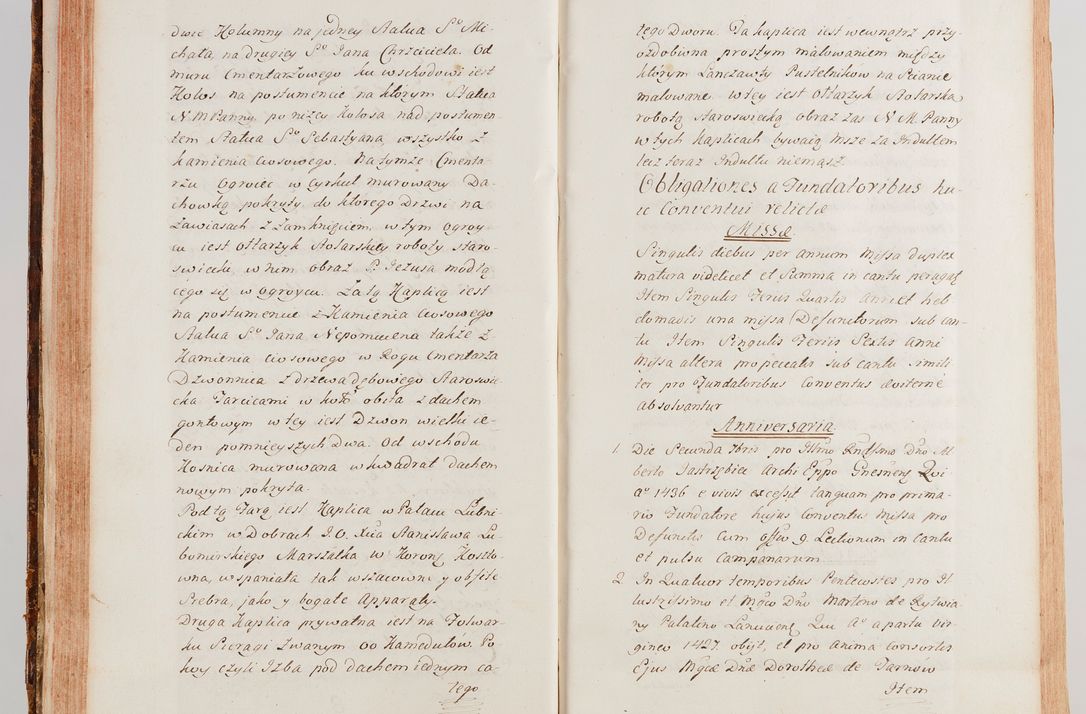 dwie Kolumny na jedney Statua Sº Mi-
chała, na drugiey Sº Jana Chrzciciela. Od
muru Cmentarzowego ku wschodowi iest
Kolos na postumencie na ktorym Statua
N. M Panny, poniżey Kolosa nad postumen-
tem Statua Sº Sebastyana, wszystko z
kamienia Ciosowego. Na tymże Cmenta-
rzu Ogroiec w Cyrkuł murowany Da-
chowką pokryty, do ktorego Drzwi na
Zawiasach z Zamknięciem, w tym Ogroy-
cu iest Ołtarzyk Stolarskiey roboty staro-
swiecki, w nim obraz P. Jezusa modlą
cego się w Ogroycu. Za tą Kaplicą iest
na postumencie z Kamienia Ciosowego
Statua Sº Jana Nepomucena także z
Kamienia Ciosowego w Rogu Cmentarza
Dzwonnica z drzewa dębowego Staroswie-
cka Tarcicami w koło obita z dachem
gontowym w tey iest Dzwon wielki ie-
den pomnieyszych Dwa. Od wschodu
Kosnica murowana w kwadrat dachem
nowym pokryta.
Pod tą Farą iest Kaplica w Pałacu Łubni-
ckim w Dobrach J. O. Xcia Stanisława Lu-
bomirskiego Marszałka W. Koron: Koszto-
wna, wspaniała tak w szacowne y obfite
Srebra, jako y bogate Apparaty.
Druga Kaplica prywatna iest na Folwar-
ku Pieragi Zwanym OO Kamedułow. Po
koy czyli Izba pod dachem iednym ca-
łego
tego Dworu. Ta kaplica iest wewnątrz przy-
ozdobiona prostym malowaniem między
ktorym Łanczawty Pustelnikow na Scianie
malowane. w tey iest Ołtarzyk Stolarską
robotą staroswiecką obraz zas N. M. Panny
w tych Kaplicach bywaią Msze za Indultem
lecz teraz Indultu niemasz.
Obligationes a Fundatoribus hu-
ic Conventui relictæ
Missæ
Singulis diebus per annum Missa duplex
matura videlicet et Summa in cantu peragar
Item Singulis Feriis Quartis anni et heb-
domadis una missa Defunctorum sub can-
tu Item Singulis Feriis Sextis anni
Missa altera pro peccatis sub cantu simili-
ter pro Fundatoribus Conventus aviterne
absolvantur
Anniversaria
1. Die Secunda 7bris pro Illmo Rndssmo Dno Al
berto Jastrzębiec Archi Eppo Gnesnen: Qui
Aº 1436 e vivis excessit tanquam pro prima-
rio Fundatore hujus Conventus Missa pro
Defunctis Cum Offio 9. Lectionum in cantu
et pulsu Campanarum
2. In Quatuor temporibus Pentecostes pro Il
lustrissimo et Mgco Dno Martino de Rytwia-
ny Palatino Lancicien: Qui Aº a partu Vir-
gineo 1427. obijt, et pro anima consortis
Ejus Mgcæ Dnæ Dorotheæ de Tarnow
Item